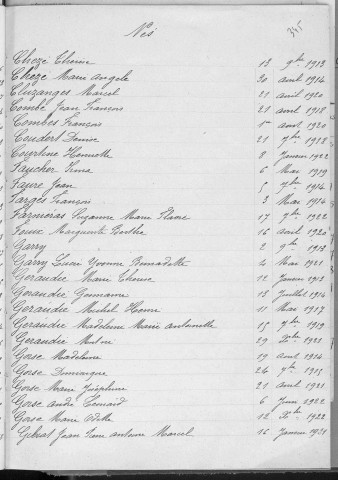 Nés
345
Chèze Thérèse 13 9bre 1913
Chèze Marie Angèle 30 avril 1914
Cluzanges Marcel 21 avril 1920
Combe Jean François 21 avril 1918
Combes François 1er août 1920
Coudert Denise 21 9bre 1918
Courtine Henriette 8 Janvier 1922
Faucher Irma 6 Mai 1919
Faure Jean 5 9bre 1914
Farges François 3 Mai 1916
Farnieras Suzanne Marie 17 9bre 1922
Marguerite Berthe 16 avril 1920
Garry 2 9bre 1913
Garry Lucie Yvonne Bernadette 4 Mai 1921
Geraudie Marie Thérèse 12 Janvier 1913
Geraudie Germaine 13 Juillet 1914
Geraudie Michel Henri 11 Mai 1917
Geraudie Madeleine Marie Antoinette 15 9bre 1919
Geraudie 29 Xbre 1921
Gorse Madeleine 19 avril 1914
Gorse Dominique 24 9bre 1915
Gorse Marie Joséphine 21 avril 1921
Gorse André Léonard 6 Juin 1922
Gorse Marie Odette 12 Xbre 1922
Jean antoine Marcel 16 Janvier 1921